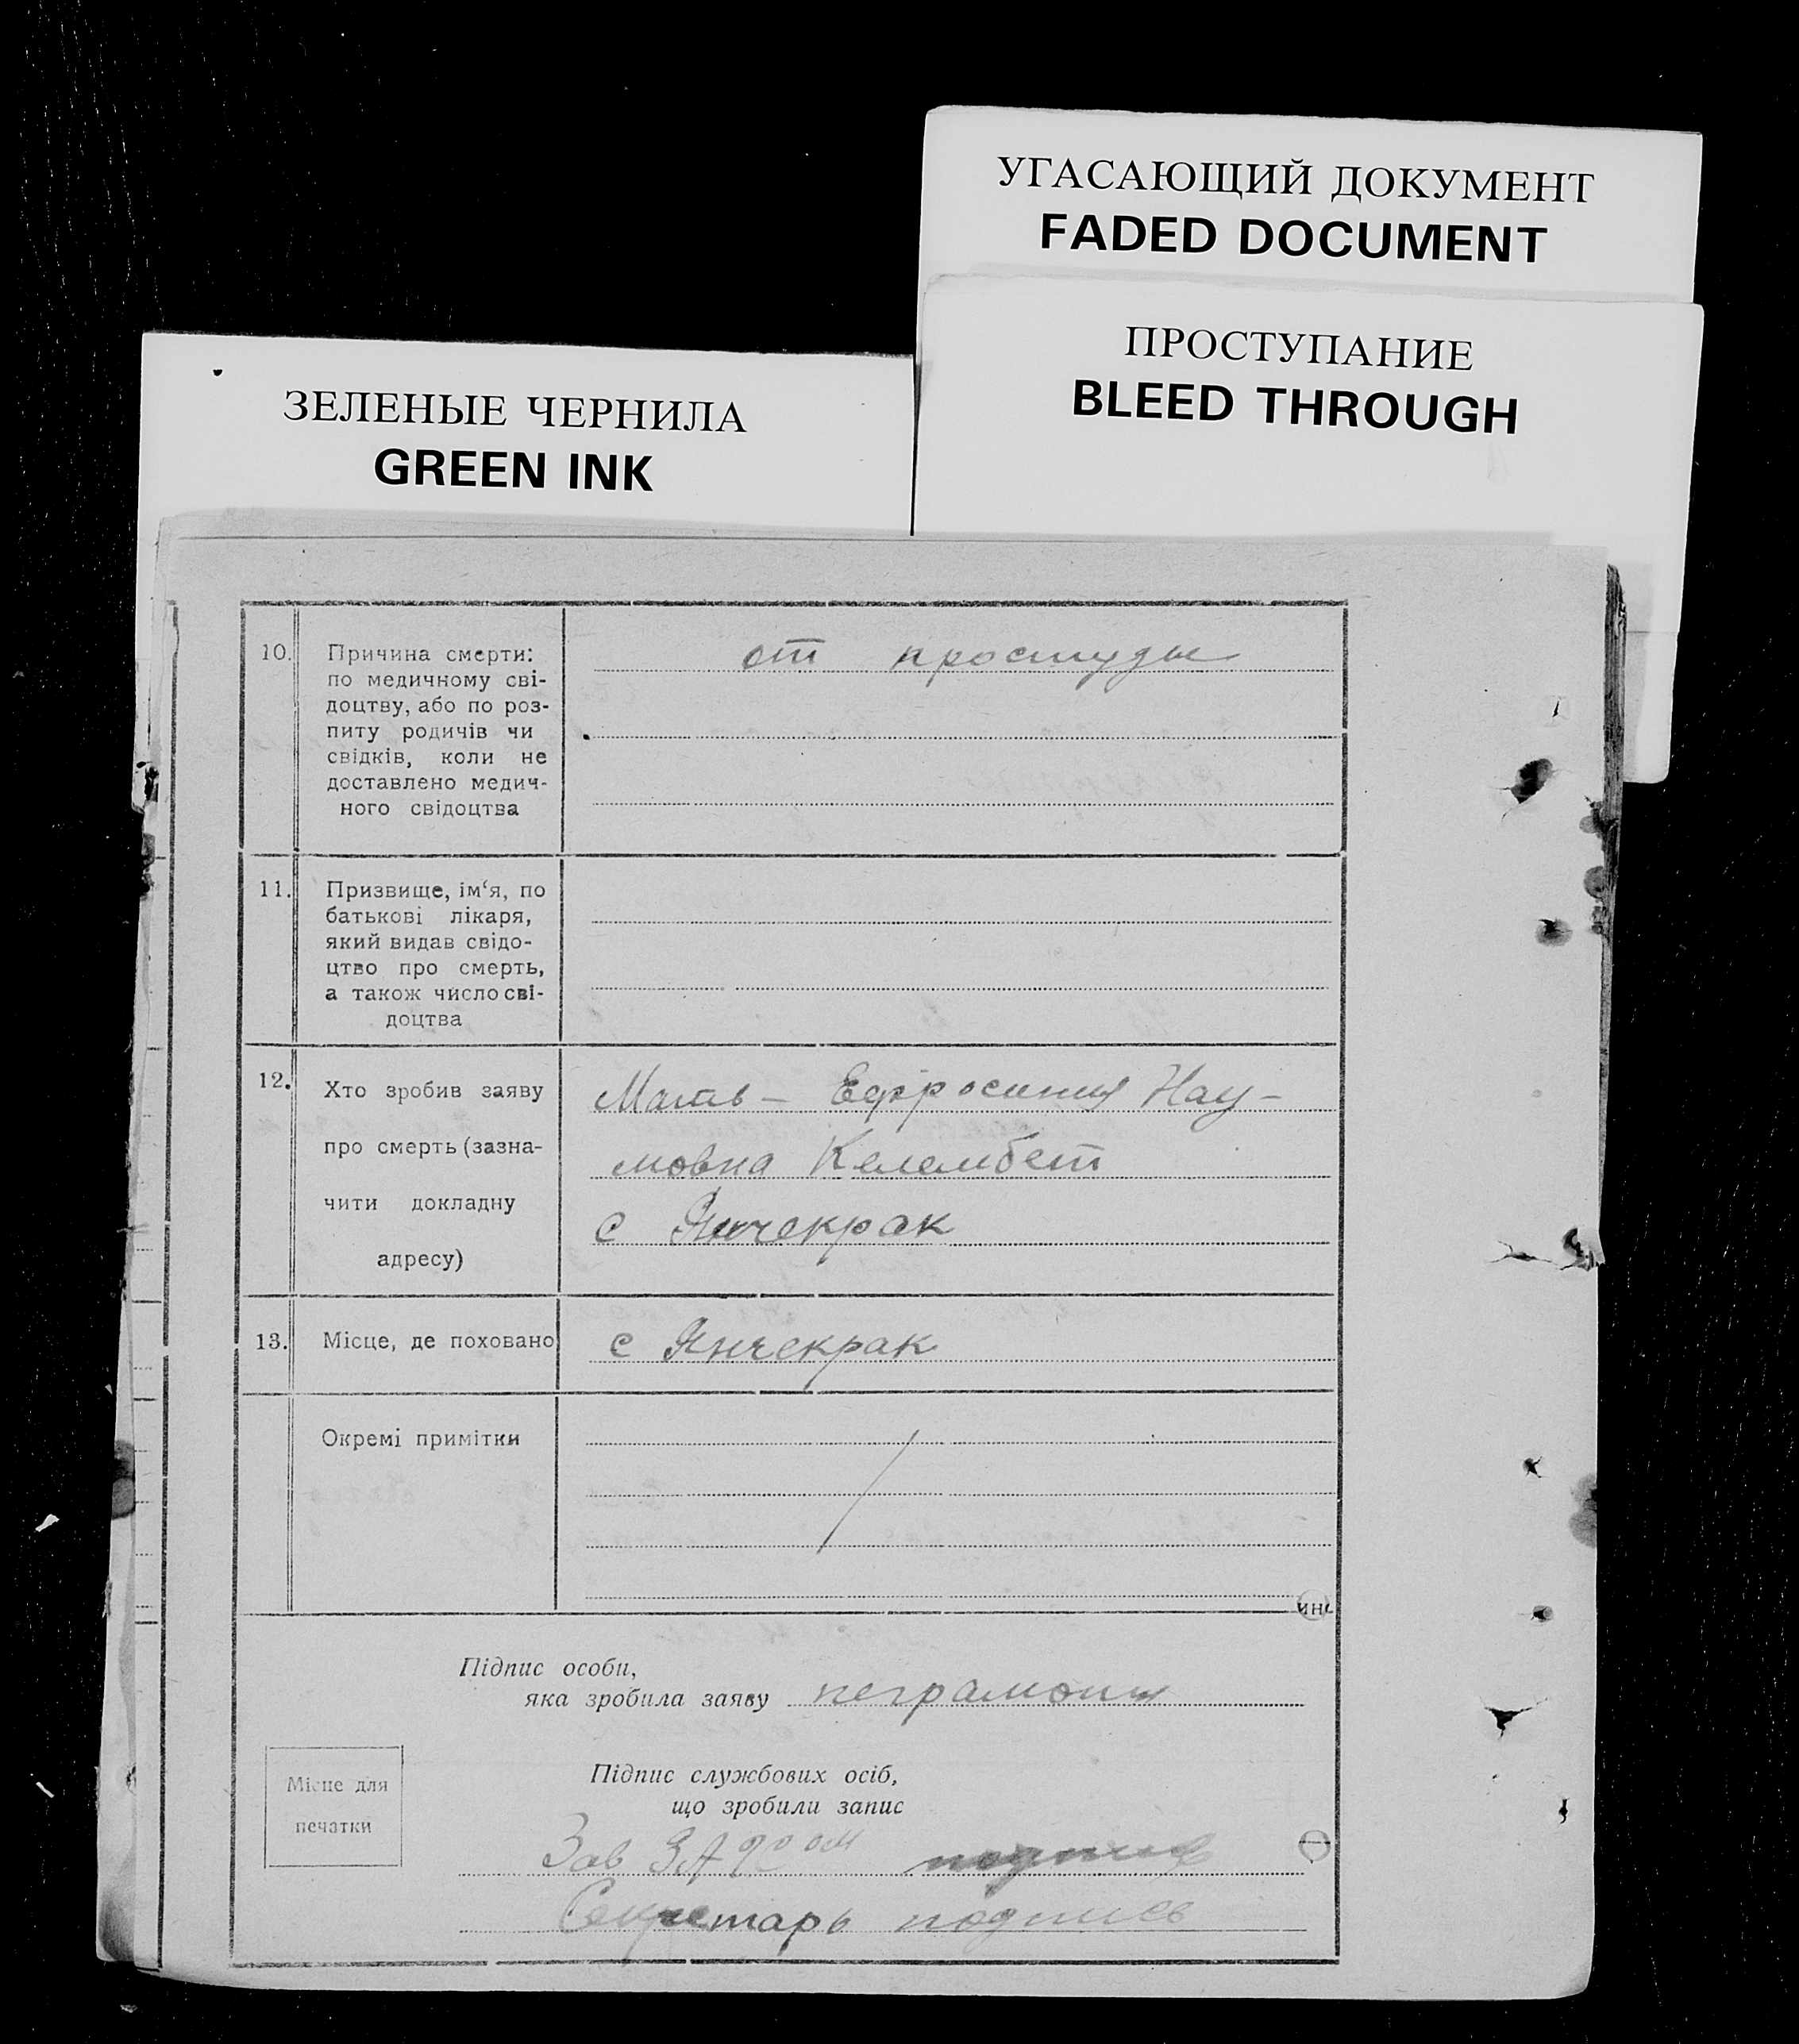 УГАСАЮЩИЙ ДОКУМЕНТ
FADED DOCUMENT
ПРОСТУПАНИЕ
BLEED THROUGH
ЗЕЛЕНЫЕ ЧЕРНИЛА
GREEN INK
10.
Причина смерти:
по медичному сві-
доцтву, або по роз-
питу родичів чи
свідків, коли не
доставлено медич-
ного свідоцтва
от простуды
11.
Призвище, ім‘я, по
батькові лікаря,
який видав свідо-
цтво про смерть,
а також число сві-
доцтва
12.
Хто зробив заяву
про смерть (зазна-
чити докладну
адресу)
Мать — Ефросиния Нау-
мовна Келембет
с Янчекрак
13.
Місце, де поховано
с Янчекрак
Окремі примітки
Підпис особи,
яка зробила заяву неграмотн
Місце для
печатки
Підпис службових осіб,
що зробили запис
Зав подпись
Секретарь подпись